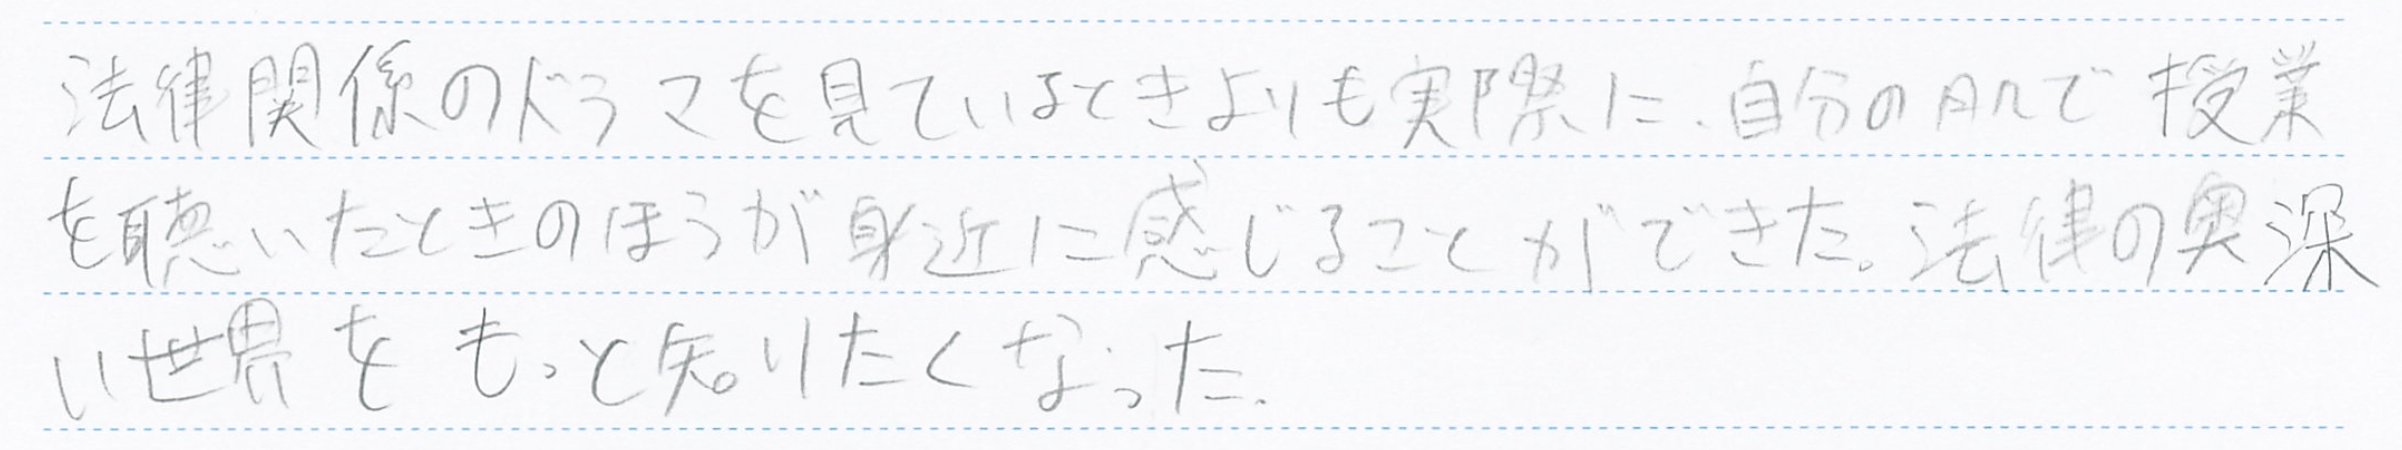 法律関係のドラマを見ているときよりも実際に、自分の肌で授業
を聴いたときのほうが身近に感じることができた。法律の奥深
い世界をもっと知りたくなった.